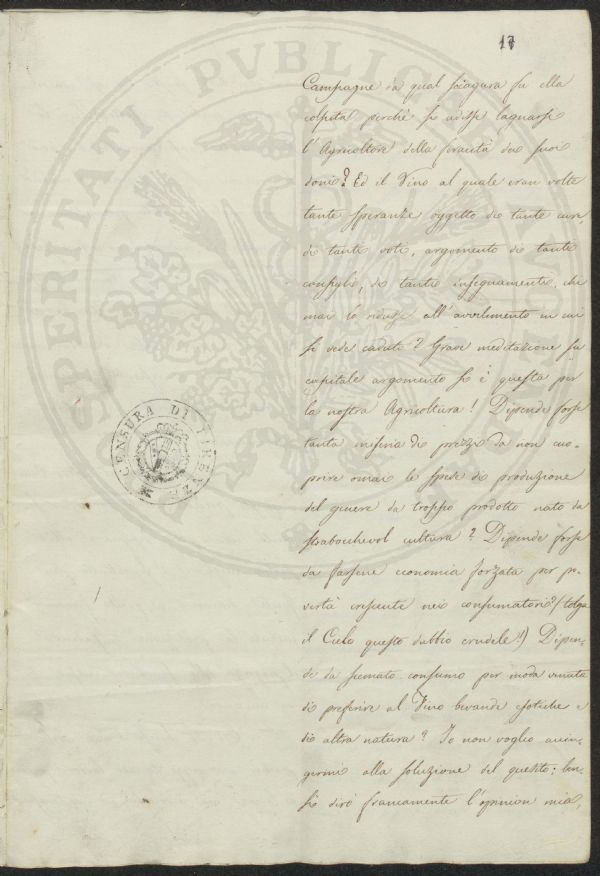 17
Campagne da qual sciagura fu ella
colpita perchè si udisse lagnarsi
l'Agricoltore della feracità dei suoi
doni? Ed il Vino al quale eran volte
tante speranze oggetto di tante cure,
di tanti voti, argomento di tanti
consigli, di tanti insegnamenti, chi
mai lo ridusse all'avvilimento in cui
si vede caduto? Grave meditazione su
capitale argomento si è questa per
la nostra Agricoltura! Dipende forse
tanta miseria di prezzi da non cuo-
prire omai le spese di produzione
del genere da troppo prodotto nato da
strabocchevol cultura? Dipende forse
da farsene economia forzata per po-
vertà crescente nei consumatori? (tolga
il Cielo questo dubbio crudele!) Dipen-
de da scemato consumo per moda venuta
di preferire al Vino bevande esotiche e
di altra natura? Io non voglio accin-
germi alla soluzione del quesito; ben-
sì dirò francamente l'opinion mia,
CENSURA DI FIRENZE
SPERITATI PUBLICAE